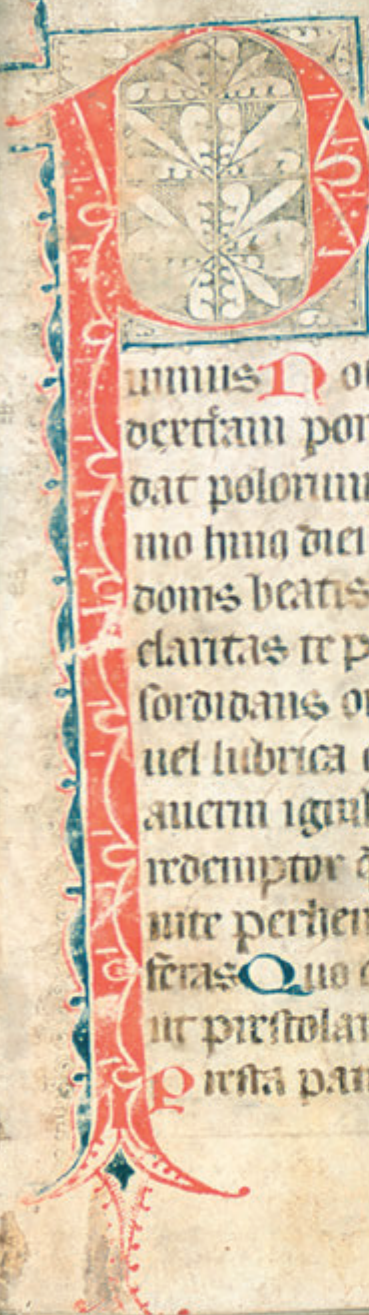 P
uimus No
dextram por
dat polorum
mo huius diei
donis beatis
claritas te p
sordidans o
uel lubrica c
auerni ignib
redemptor q
uite perhen
feras Quo c
ut prestolam
Presta pat